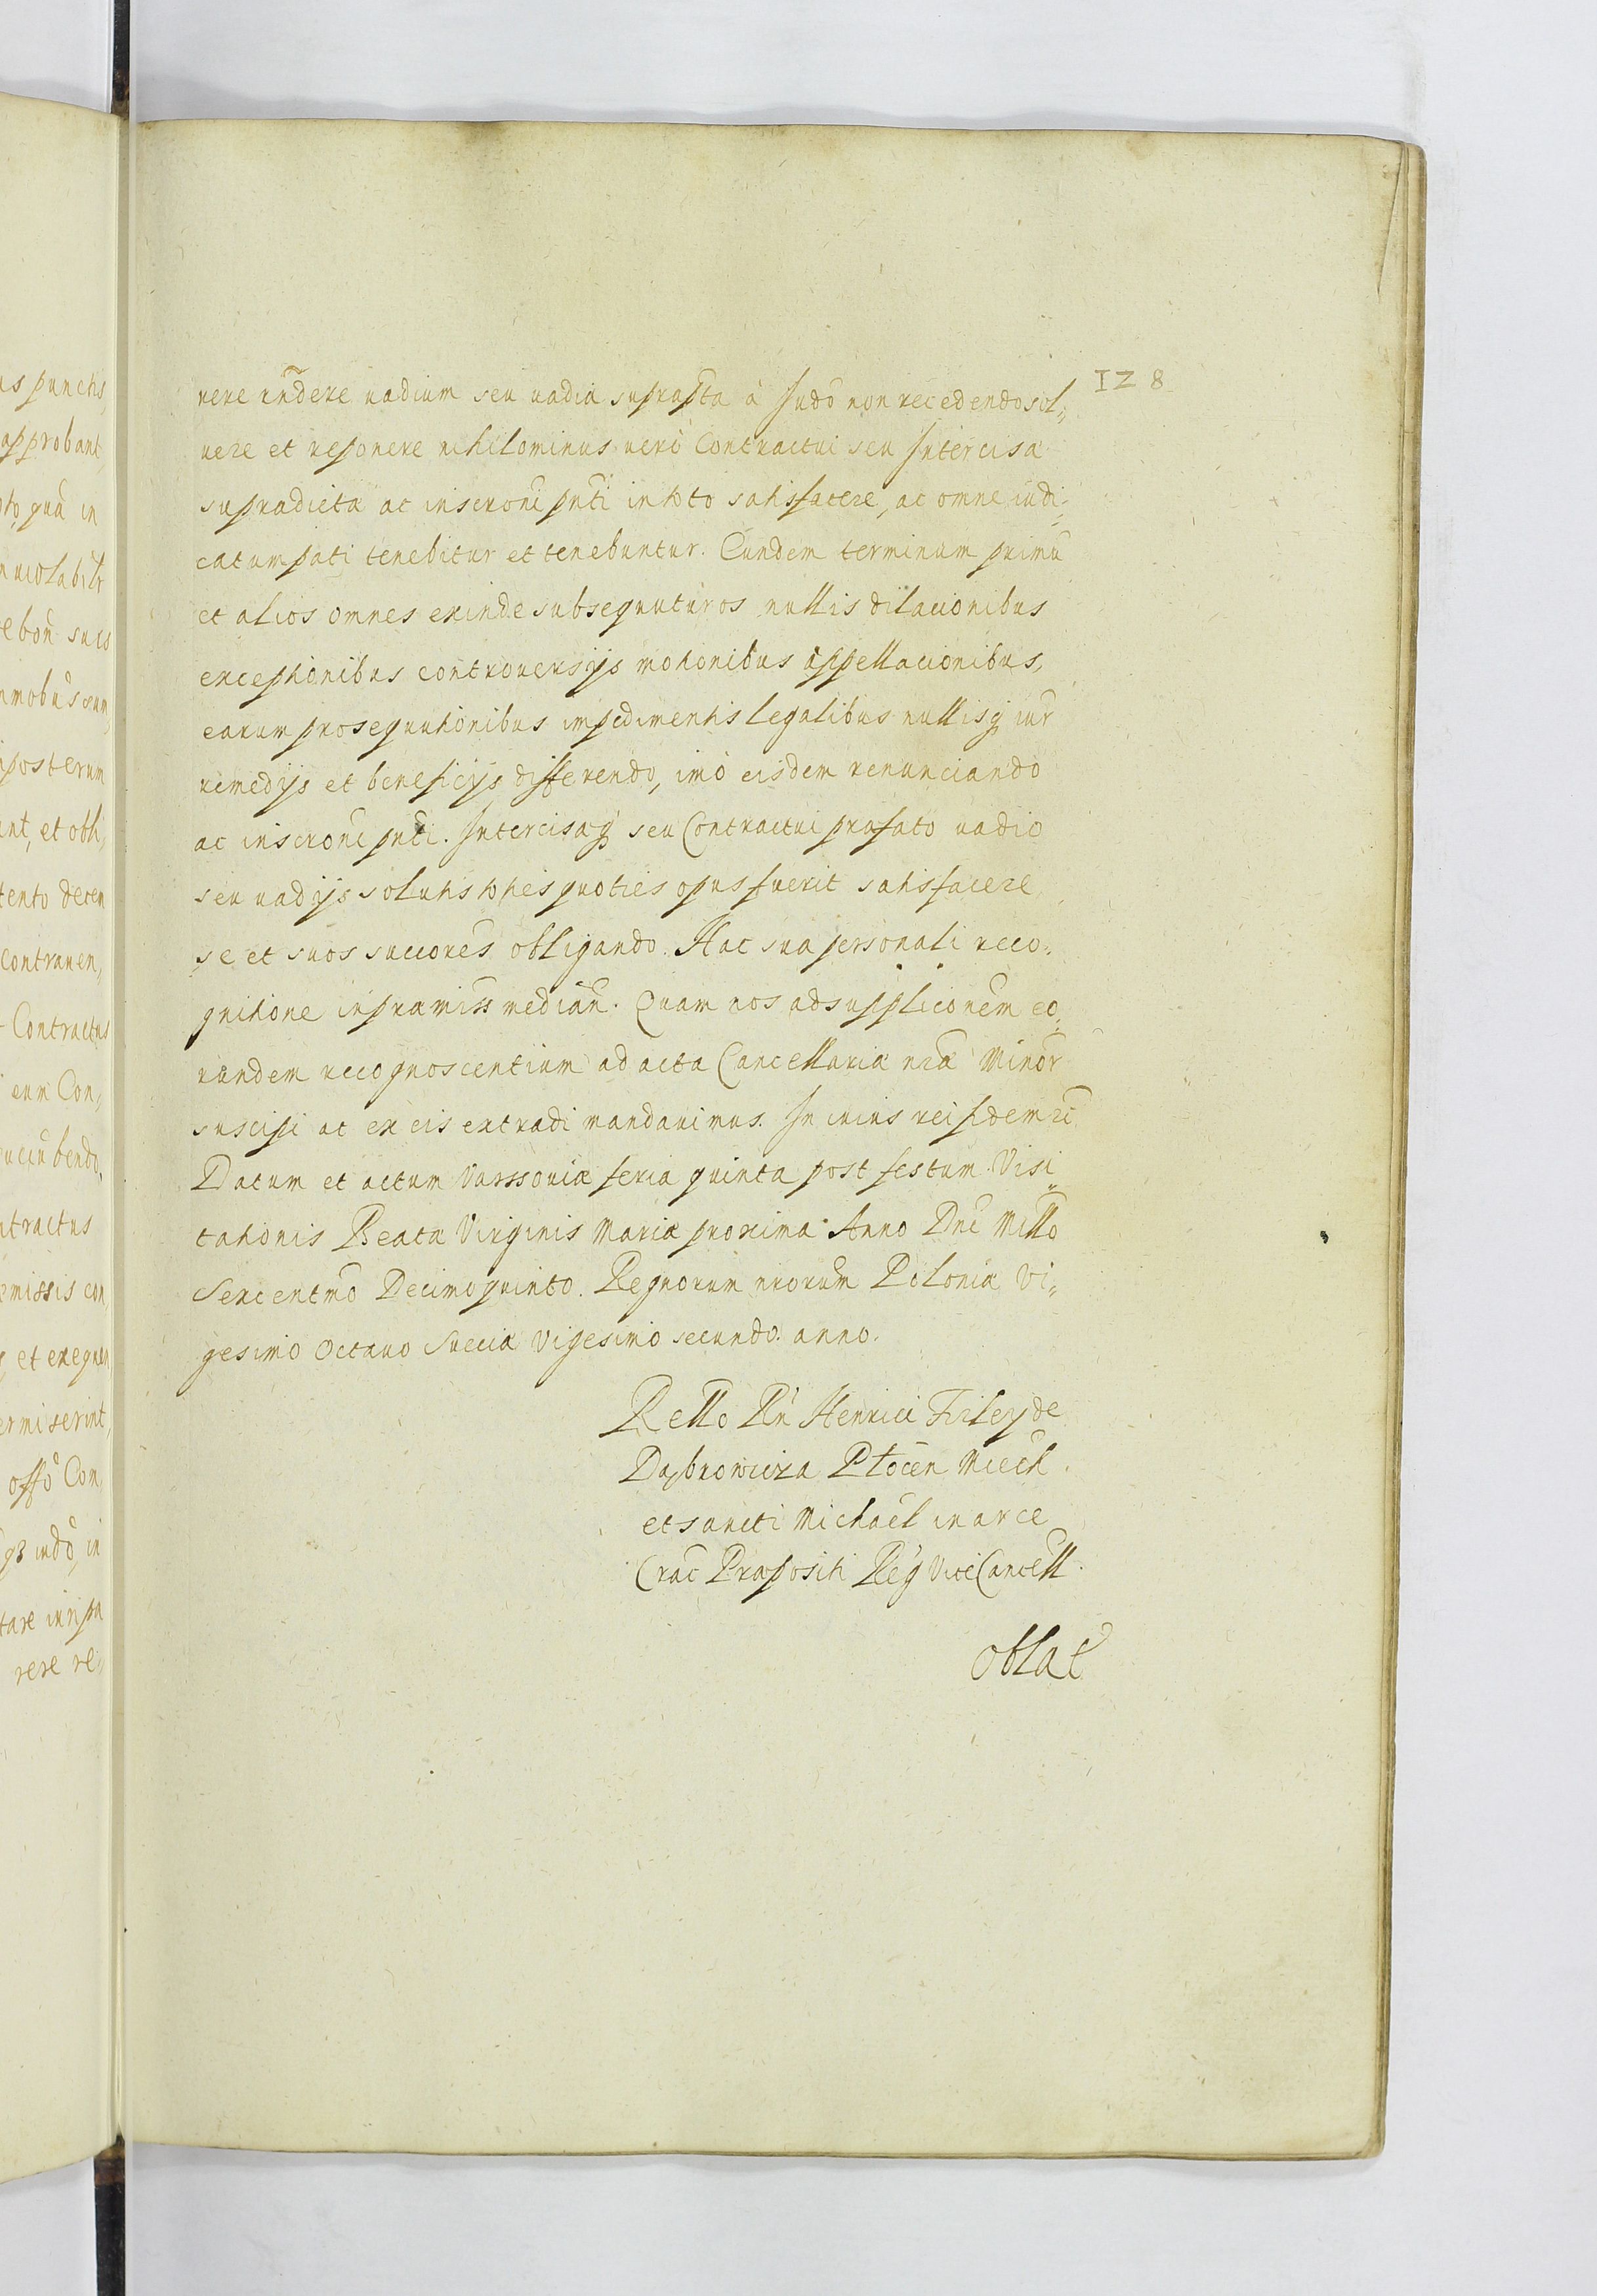 128
rere rndere uadium seu uadia suprapta à Judo non recedendo sol,,
uere et reponere nihilominus uero Contractui seu Intercisa
supradicta ac inscroni pnti in toto satisfacere, ac omne iudi,
catum pati tenebitur et tenebuntur. Eundem terminum primu
et alios omnes exinde subsequuturos nullis dilacionibus
exceptionibus controuersijs motionibus appellacionibus,
earum prosequutionibus impedimentis legalibus nullisq iur
remedijs et beneficijs differendo, imò eisdem renunciando
ac inscroni pnti. Intercisæq seu Contractui præfato uadio
seu uadijs solutis toties quoties opus fuerit satisfacere
se et suos succores obligando. Hac sua personali reco,
gnitione in præmiss median. Quam nos ad suppliconem eo,,
rundem recognoscentium ad acta Cancellariæ nræ Minor
suscipi ac ex eis extradi mandauimus. In cuius rei fidem rc
Datum et actum Varssouiæ feria quinta post festum Visi,,
tationis Beatæ Virginis Mariæ proxima Anno Dni Millo
Sexcentmo Decimoquinto. Regnorum nrorum Poloniæ Vi,,
gesimo Octauo Sueciæ Vigesimo secundo anno.
Rello Rn Henrici Firley de
Dąbrowicza Plocen Miech
et sancti Michael in arce
Crac Præpositi Reg ViceCancell.
Oblat
as punctis,
approbant,
oto, qua in
nuiolabilr
e bon suis
posterum
ant, et obli,
tento decem
contrauen,
Contractus
eum Con,
ucubendo,
ntractus
emissis con,
et exequen
ermiserint,
offo Con
iudo, in
tare in ripa
rere re,